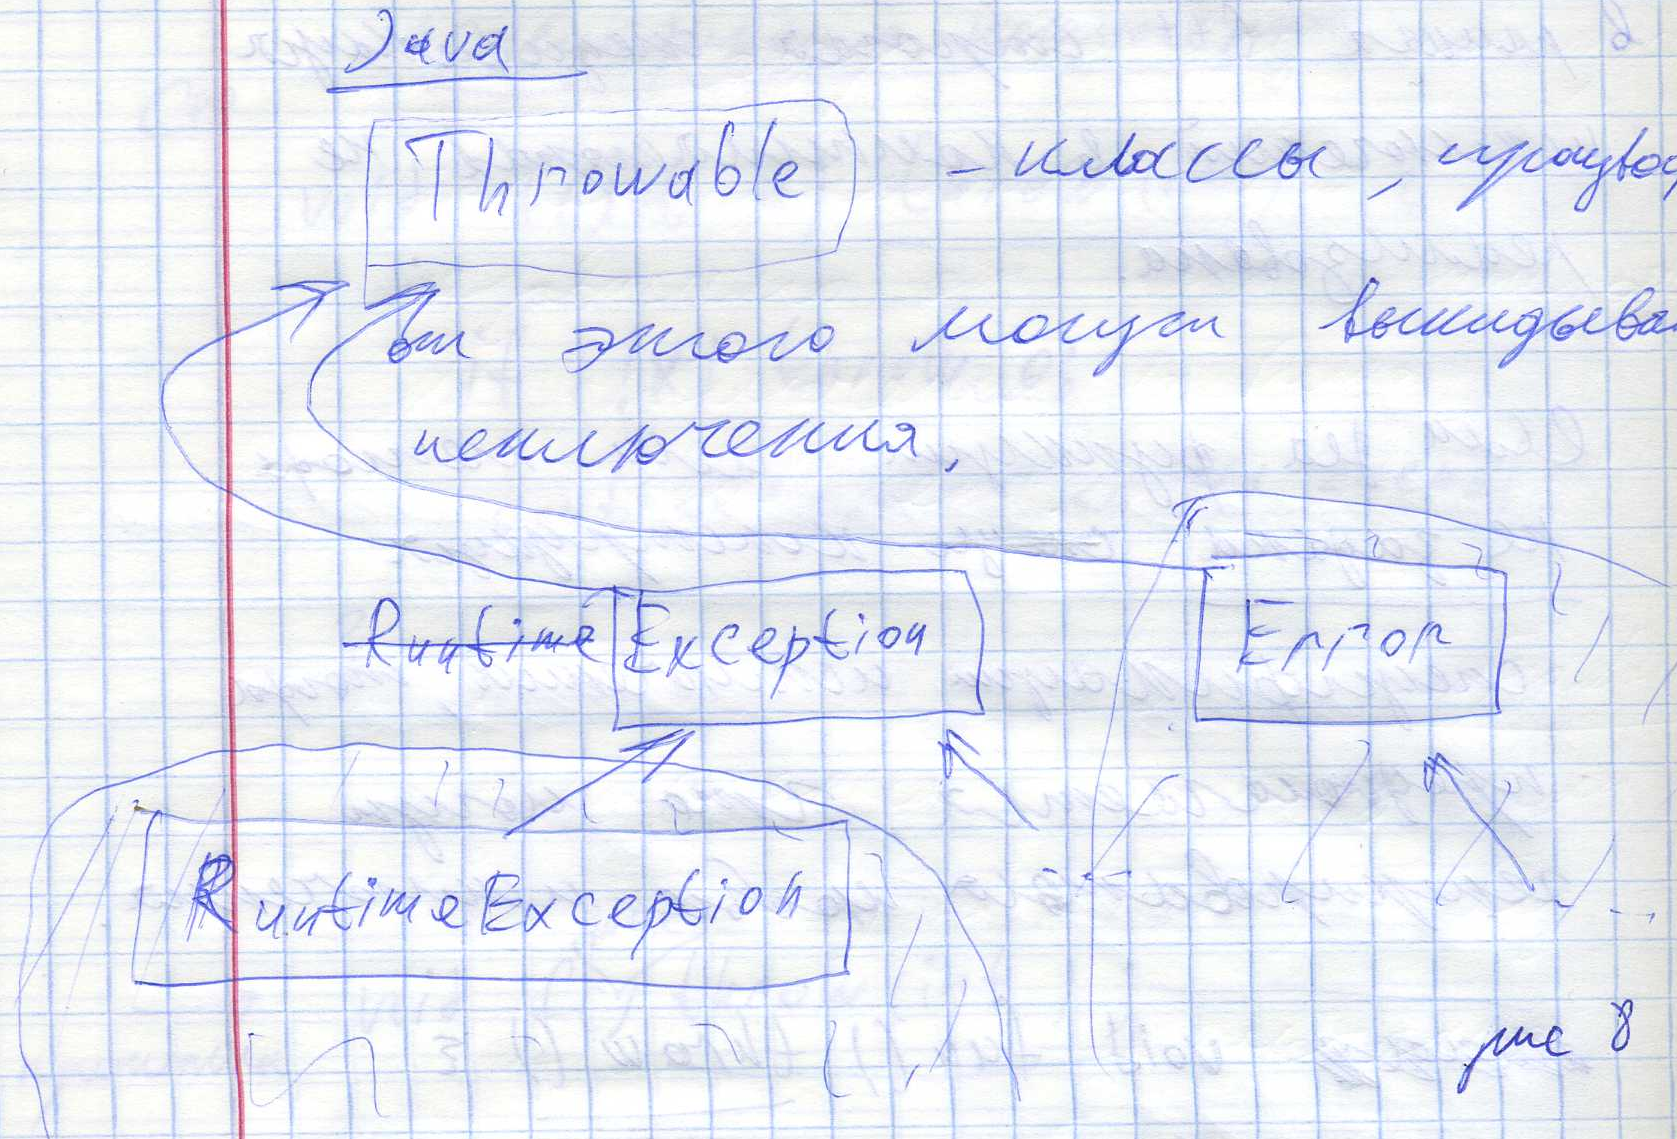 Java
Throwable - классы, производ
от этого могут выкидыва
исключения.
Runtime Exception Error
...
...
RuntimeException
рис 8